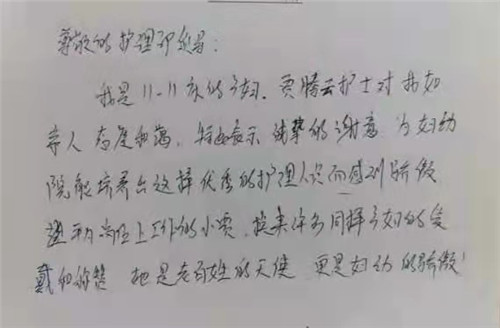 尊敬的护理部领导：
我是11-11床的产妇．贾腾云护士对我如
亲人 态度和蔼．特此表示 诚挚的谢意 为妇幼
院能培养出这样优秀的护理人员而感到骄傲
平凡岗位上工作的小贾．换来许多同样产妇的爱
戴和称赞 她是老百姓的天使 更是妇幼的骄傲！